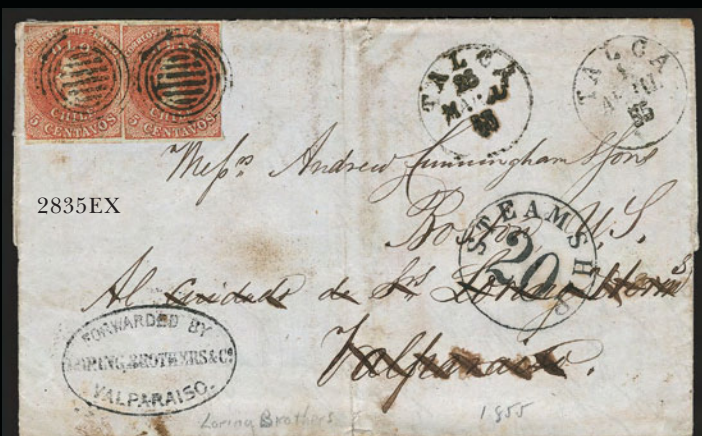 COLON
CHILE
5 CENTAVOS
CHILE
5 CENTAVOS
TALCA
28
MAR
TALCA
1
ABRIL
55
Mess.rs Andrew Cunningham & Sons
2835EX
Boston U.S.
STEAMSHIP
20
Al Cuidado de Srs Loring Herms
Valparaiso.
FORWARDED BY
LORING, BROTHERS & Co
VALPARAISO.
Loring Brothers
1855